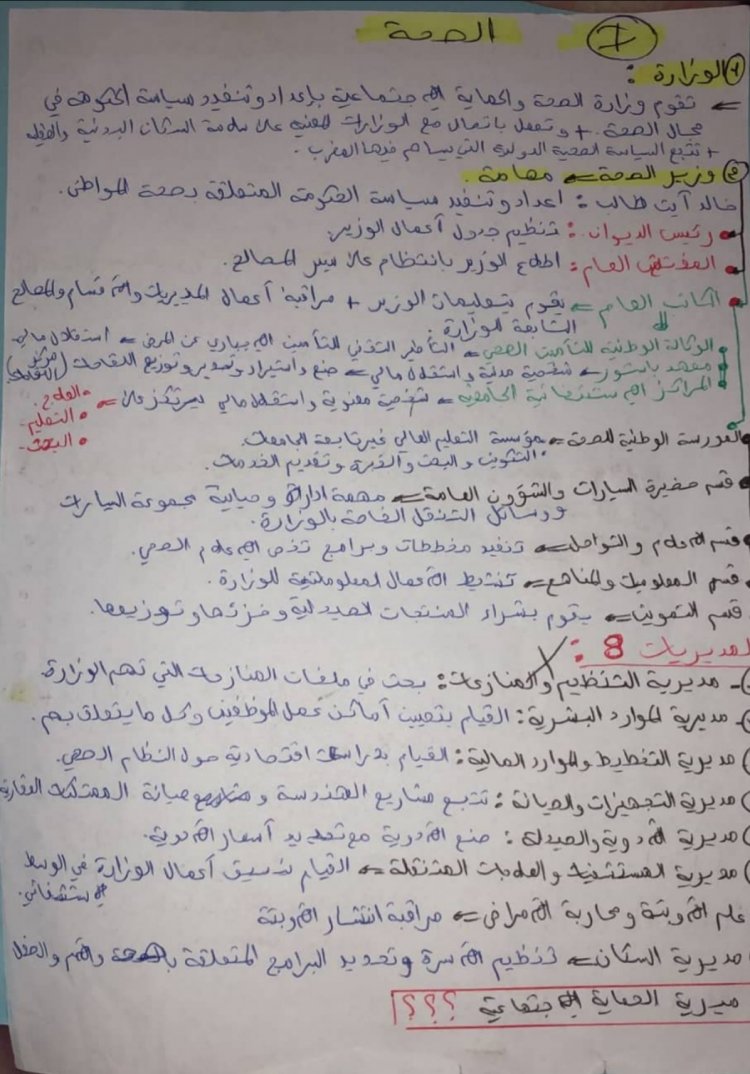 I الصحة
1) الوزارة :
← تقوم وزارة الصحة والحماية الاجتماعية بإعداد وتنفيد سياسة الحكومة في
مجال الصحة. + وتعمل باتصال مع الوزارات المعنية على سلامة السكان البدنية والعقلية
+ تتبع السياسة الصحية الدولية التي يساهم فيها المغرب.
2) وزير الصحة ← مهامه.
خالد آيت طالب : اعداد وتنفيد سياسة الحكومة المتعلقة بصحة المواطن.
• رئيس الديوان : تنظيم جدول أعمال الوزير.
• المفتش العام : اطلاع الوزير بانتظام على سير المصالح.
• الكاتب العام ← يقوم بتعليمات الوزير + مراقبة أعمال المديريات والاقسام والمصالح
التابعة للوزارة.
• الوكالة الوطنية للتأمين الصحي ← التأطير التقني للتأمين الاجباري عن المرض ← استقلال مالي
• معهد باستور ← شخصية مدنية واستقلال مالي ← صنع واستيراد وتصدير وتوزيع اللقاحات (مركز اللقاحات)
• المراكز الاستشفائية الجامعية ← شخصية معنوية واستقلال مالي يرتكز على ← • العلاج.
• التعليم.
• البحث.
• المدرسة الوطنية للصحة ← مؤسسة التعليم العالي غير تابعة للجامعات.
• التكوين والبحث والخبرة وتقديم الخدمات.
• قسم حضيرة السيارات والشؤون العامة ← مهمة ادارة وصيانة مجموعة السيارات
ووسائل التنقل الخاصة بالوزارة.
• قسم الاعلام والتواصل ← تنفيد مخططات وبرامج تخص الاعلام الصحي.
• قسم المعلوميات والمناهج ← تنشيط الأعمال المعلوماتية للوزارة.
قسم التموين ← يقوم بشراء المنتجات الصيدلية وخزنها وتوزيعها.
المديريات 8 :
- مديرية التنظيم والمنازعات : بحث في ملفات المنازعات التي تهم الوزارة
- مديرية الموارد البشرية : القيام بتعيين أماكن عمل الموظفين وكل ما يتعلق بهم.
) مديرية التخطيط والموارد المالية : القيام بدراسات اقتصادية حول النظام الصحي.
) مديرية التجهيزات والصيانة : تتبع مشاريع الهندسة وصيانة الممتلكات العقارية
) مديرية الأدوية والصيدلة : صنع الأدوية مع تحديد أسعار الأدوية.
) مديرية المستشفيات والعلاجات المتنقلة ← القيام بتنسيق أعمال الوزارة في الوسط
الاستشفائي.
علم الأوبئة ومحاربة الأمراض ← مراقبة انتشار الأوبئة
مديرية السكان ← تنظيم الأسرة وتحديد البرامج المتعلقة بالصحة والأم والطفل
مديرية الحماية الاجتماعية ؟؟؟